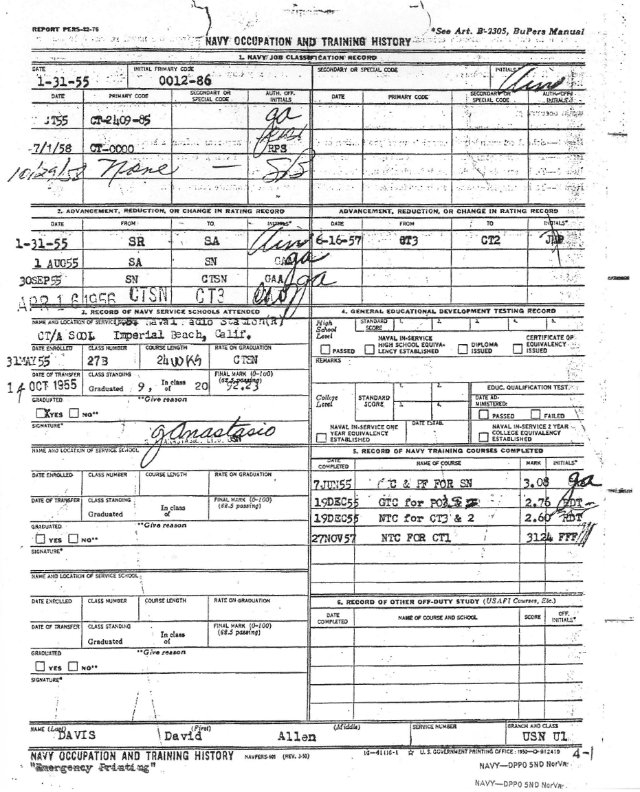 REPORT PERS-22-75
*See Art. B-2305, BuPers Manual
NAVY OCCUPATION AND TRAINING HISTORY
1. NAVY JOB CLASSIFICATION RECORD
DATE INITIAL PRIMARY CODE SECONDARY OR SPECIAL CODE INITIALS
1-31-55 0012-86
DATE PRIMARY CODE SECONDARY OR SPECIAL CODE AUTH. OFF. INITIALS DATE PRIMARY CODE SECONDARY OR SPECIAL CODE AUTH. OFF. INITIALS
CT-2409-85 ga
7/1/58 CT-0000 RPS
10/29/58 None —
2. ADVANCEMENT, REDUCTION, OR CHANGE IN RATING RECORD ADVANCEMENT, REDUCTION, OR CHANGE IN RATING RECORD
DATE FROM TO INITIALS* DATE FROM TO INITIALS*
1-31-55 SR SA 6-16-57 CT3 CT2
1 AUG55 SA SN ga
30SEP55 SN CTSN GAA ga
APR 16 1956 CTSN CT3
3. RECORD OF NAVY SERVICE SCHOOLS ATTENDED 4. GENERAL EDUCATIONAL DEVELOPMENT TESTING RECORD
NAME AND LOCATION OF SERVICE Naval Radio Station(R)
CT/A SCOL Imperial Beach, Calif.
High School Level STANDARD SCORE 1. 2. 3. 4.
PASSED NAVAL IN-SERVICE HIGH SCHOOL EQUIVALENCY ESTABLISHED DIPLOMA ISSUED CERTIFICATE OF EQUIVALENCY ISSUED
REMARKS
DATE ENROLLED CLASS NUMBER COURSE LENGTH RATE ON GRADUATION
31MAY55 273 24WKS CTSN
DATE OF TRANSFER CLASS STANDING FINAL MARK (0-100) (62.5 passing)
14 OCT 1955 Graduated 9, In class of 20 92.23
GRADUATED **Give reason
X YES NO**
SIGNATURE*
g Anastasio
College Level STANDARD SCORE 1. 2. 3. 4.
EDUC. QUALIFICATION TEST
DATE ADMINISTERED:
PASSED FAILED
NAVAL IN-SERVICE ONE YEAR EQUIVALENCY ESTABLISHED DATE ESTAB. NAVAL IN-SERVICE 2 YEAR COLLEGE EQUIVALENCY ESTABLISHED
5. RECORD OF NAVY TRAINING COURSES COMPLETED
DATE COMPLETED NAME OF COURSE MARK INITIALS*
7JUN55 C & PF FOR SN 3.08 ga
19DEC55 GTC for PO3 & 2 2.76 HDT
19DEC55 NTC for CT3 & 2 2.60 HDT
27NOV57 NTC FOR CT1 3124 FFF
NAME AND LOCATION OF SERVICE SCHOOL
DATE ENROLLED CLASS NUMBER COURSE LENGTH RATE ON GRADUATION
DATE OF TRANSFER CLASS STANDING FINAL MARK (0-100) (62.5 passing)
Graduated In class of
GRADUATED **Give reason
YES NO**
SIGNATURE*
NAME AND LOCATION OF SERVICE SCHOOL
DATE ENROLLED CLASS NUMBER COURSE LENGTH RATE ON GRADUATION
DATE OF TRANSFER CLASS STANDING FINAL MARK (0-100) (62.5 passing)
Graduated In class of
GRADUATED **Give reason
YES NO**
SIGNATURE*
6. RECORD OF OTHER OFF-DUTY STUDY (USAFI Courses, Etc.)
DATE COMPLETED NAME OF COURSE AND SCHOOL SCORE OFF. INITIALS*
NAME (Last) (First) (Middle) SERVICE NUMBER BRANCH AND CLASS
DAVIS David Allen USN U1
NAVY OCCUPATION AND TRAINING HISTORY NAVPERS-601 (REV. 3-50) 16—61116-1 U. S. GOVERNMENT PRINTING OFFICE: 1950—O-912419 4-1
"Emergency Printing"
NAVY—DPPO 5ND NorVa.
NAVY—DPPO 5ND NorVa.